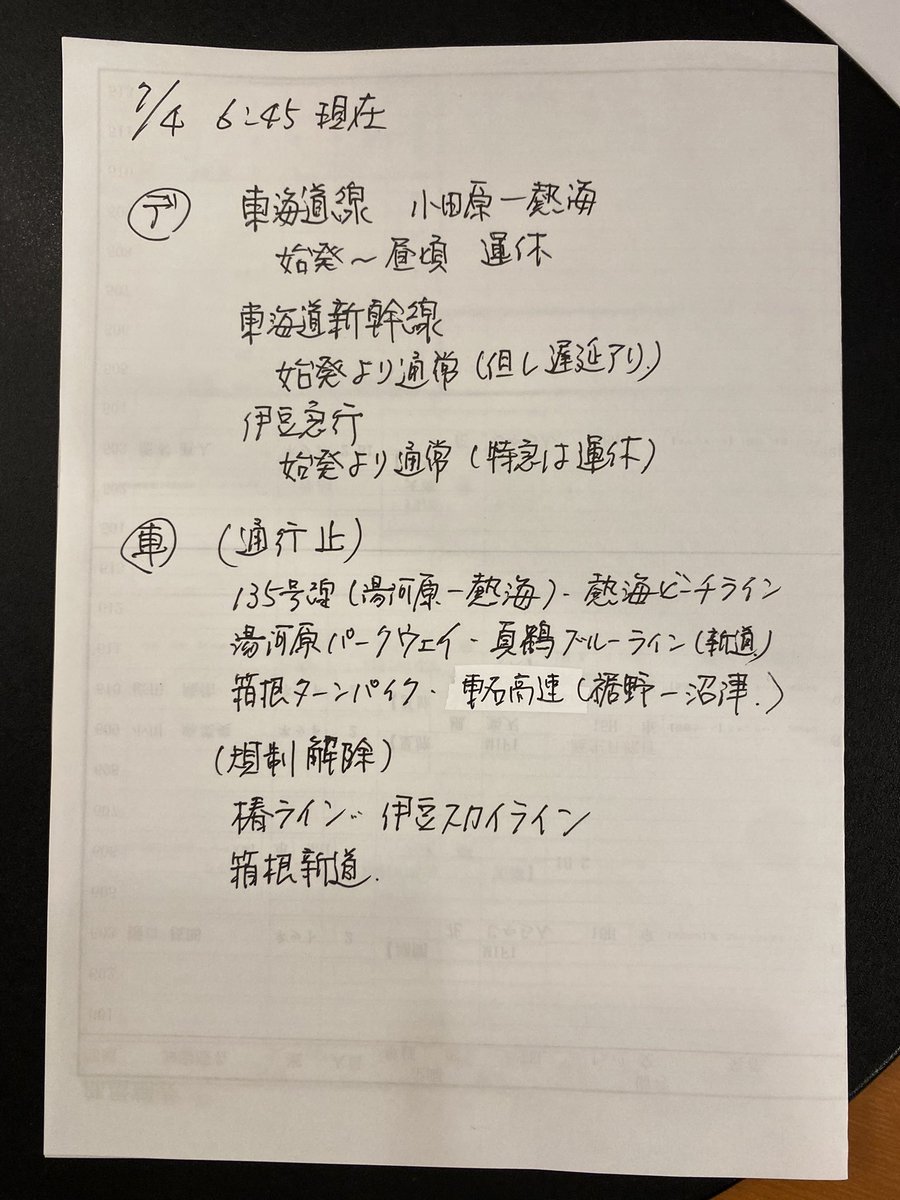 7/4 6:45 現在
デ 東海道線 小田原ー熱海
始発〜昼頃 運休
東海道新幹線
始発より通常(但し遅延アリ.)
伊豆急行
始発より通常(特急は運休)
車 (通行止)
135号線(湯河原ー熱海)・熱海ビーチライン
湯河原パークウェイ・真鶴ブルーライン(新道)
箱根ターンパイク・東名高速(裾野ー沼津.)
(規制解除)
椿ライン・伊豆スカイライン
箱根新道.